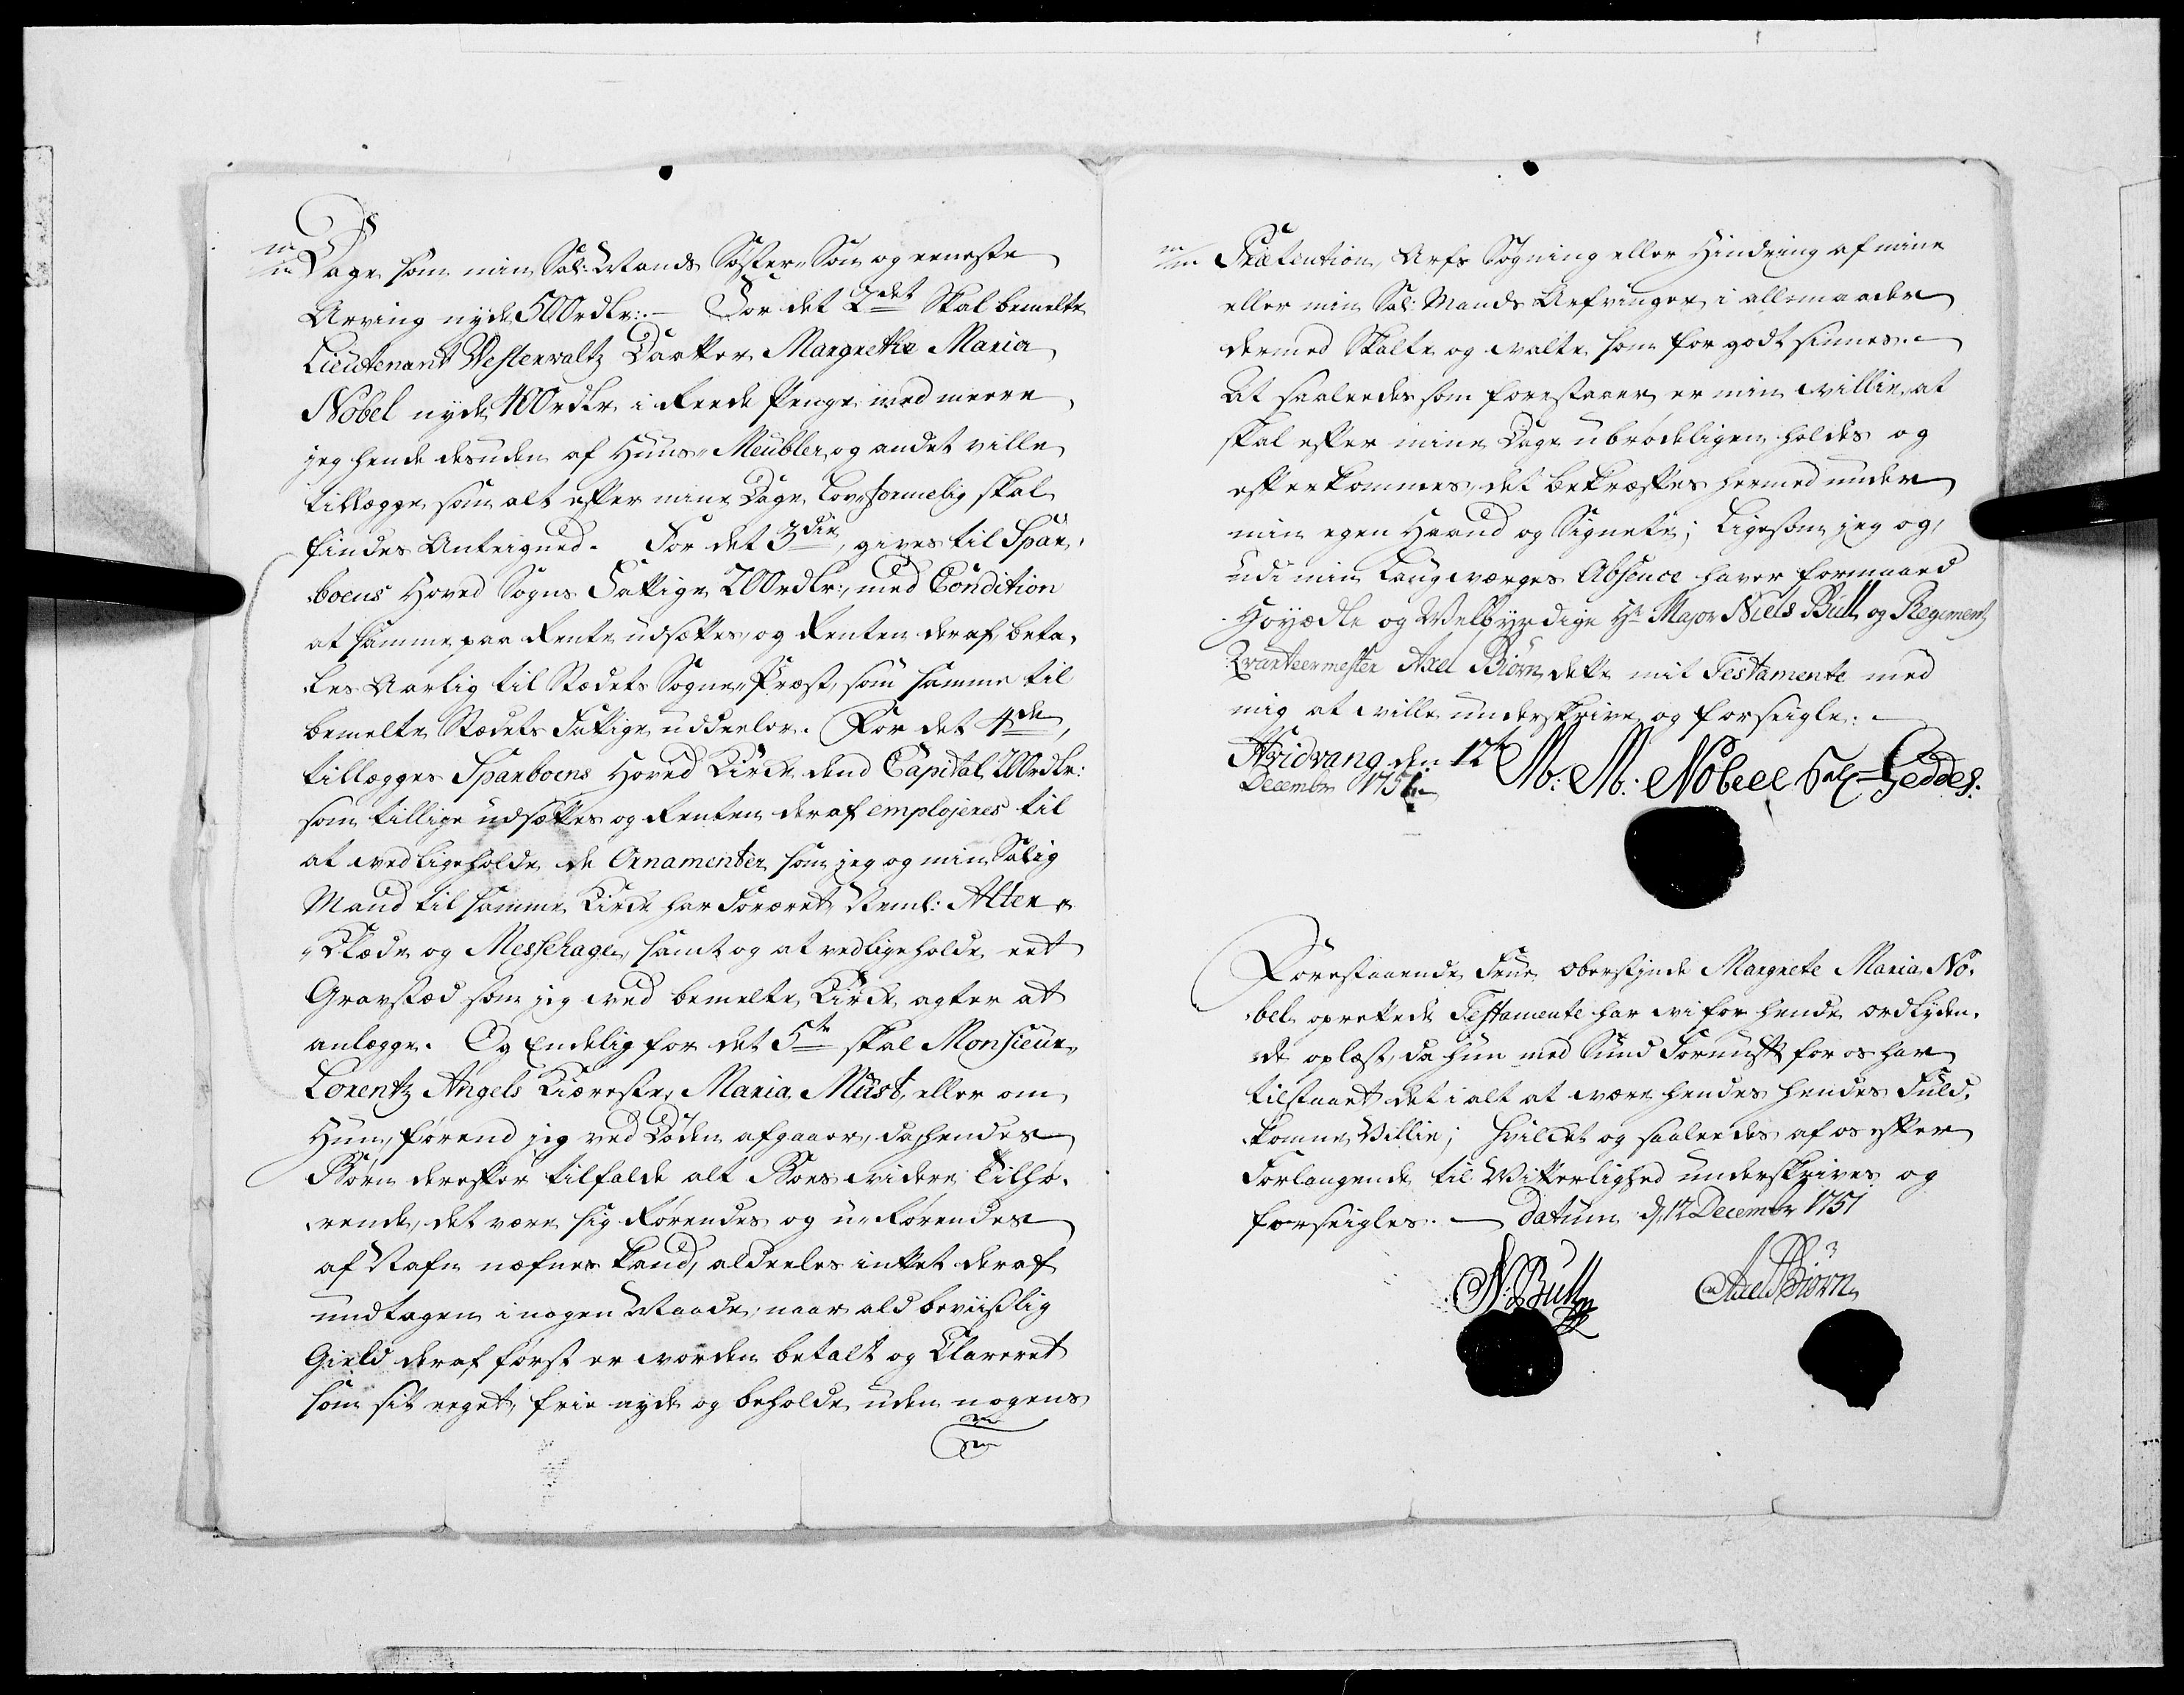 Dage som min Sal: Mands Søster-Søn og eeneste
Arving nyde 500 rdlr: – For det 2det Skal bemelte
Lieutenant Westerwaltz Daatter Margrethe Maria
Nobel nyde 400 rdlr i Reede Penge med meere
jeg hende desuden af Huus-Meubler og andet ville
tillægge som alt efter mine Dage lovformelig skal
findes Anteigned. For det 3die, gives til Spar-
boens Hoved Sogns Fattige 200 rdlr:, med Condition
at samme paa Rente udsættes, og Renten deraf beta-
les Aarlig til Stædets Sogne-Præst, som samme til
bemelte Stædets Fattige uddeeler. For det 4de,
tillægges Sparboens Hoved Kirke dend Capital 200 rdlr:
som tillige udsættes og Renten deraf employeres til
at vedligeholde de Ornamenter som jeg og min Salig
Mand til samme Kirke har Foræret Neml: Alter-
-Klæde og Messehagel, samt og at vedligeholde eet
Gravstæd som jeg ved bemelte Kirke agter at
anlægge. Og Endelig for det 5te skal Monsieur
Lorentz Angels Kiæreste, Maria Must, eller om
Hun, førend jeg ved Døden afgaaer, da hendes
Børn derefter tilfalde alt Boes videre Tilhø-
rende, det være sig Rørendes og u-Rørendes
af Nafn næfnes kand, aldeeles intet deraf
undtagen i nogen Maade, naar ald beviislig
Gield deraf først er vorden betalt og Clareret
som sit eeget, frie nyde og beholde uden nogens
Prætention, Arfs Søgning eller Hindring af mine
eller min Sal: Mands Arfvinger i allemaader
dermed Skalte og valte som for godt siunes. –
At saaleedes som forestaaer er min villie, at
skal efter mine Dage ubrødeligen holdes og
efterkommes, det bekræftes hermed under
min egen Haand og Signete; Ligesom jeg og,
udi min Laugværges Absence haver formaaed
Høyædle og Velbyrdige Hr Major Niels Bull og Regiments
Qvarteermester Axel Biørn dette mit Testamente med
mig at ville underskrive og forseigle. –
Hvidvang den 12te M: M: Nobell Sal Geddes.
December 1751
Forestaaende Frue Oberstinde Margrete Maria No-
bel oprettede Testamente har vi for hende ordlyden-
de oplæst, da hun med Sund Fornuft for os har
tilstaaet det i alt at være hendes hendes Fuld-
komne Villie; hvilket og saaleedes af os efter
Forlangende til Vitterlighed underskrives og
forseigles. – Datum d: 12 December 1751
N: Bull Axel Biørn